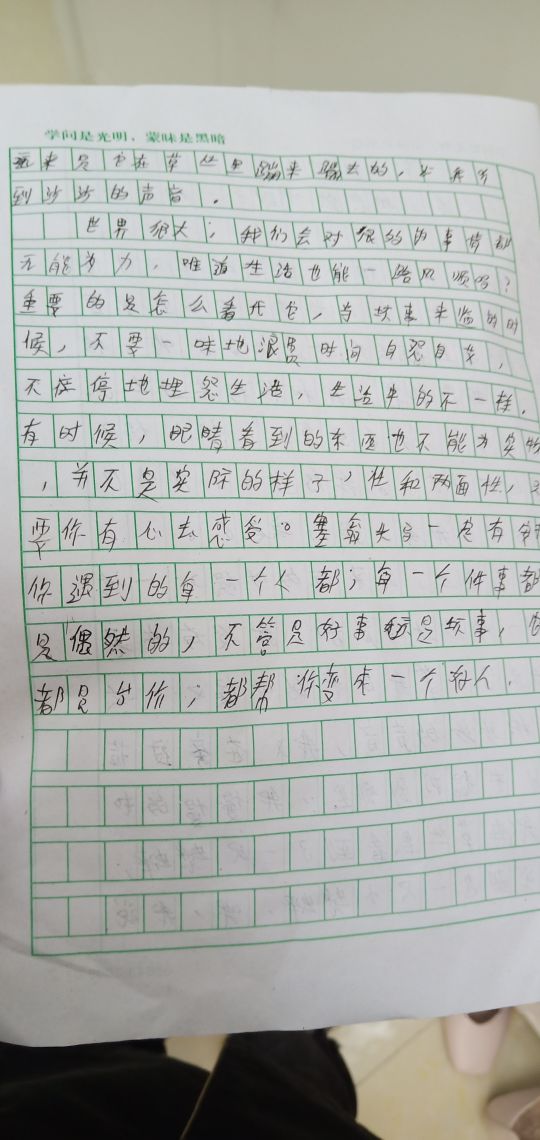 学问是光明，蒙昧是黑暗
来是它在草丛里蹦来蹦去的，
到沙沙的声音。
世界很大；我们会对很的的事情却
无能为力，难道生活也能一路风顺吗？
重要的是怎么看代它，当坏事来临的时
候，不要一味地浪费时间自怨自艾，
不应停地埋怨生活，生活中的不一样。
有时候，眼睛看到的东西也不能为实物
，并不是实际的样子，性和两面性，
要你有心去感受。塞翁失马一定有
你遇到的每一个人都；每一个件事都
是偶然的，不管是好事还是坏事，
都是分价；都帮你变成一个好人。